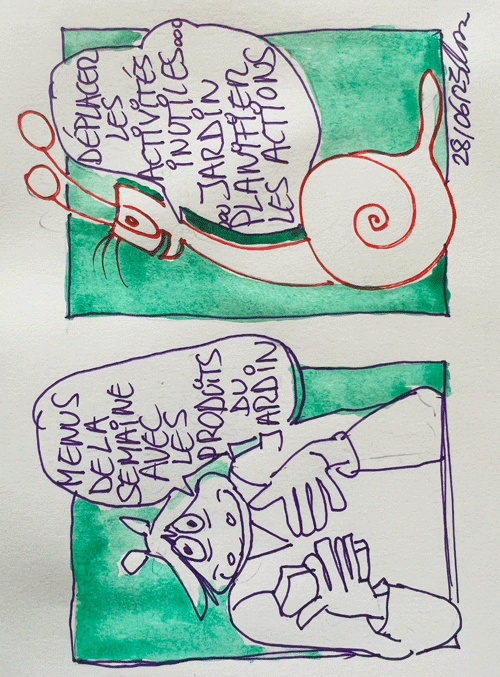 MENUS
DE LA
SEMAINE
AVEC
LES
PRODUITS
DU
JARDIN
DÉPLACER
LES
ACTIVITÉS
INUTILES...
JARDIN
PLANIFIER
LES ACTIONS
28/06/23